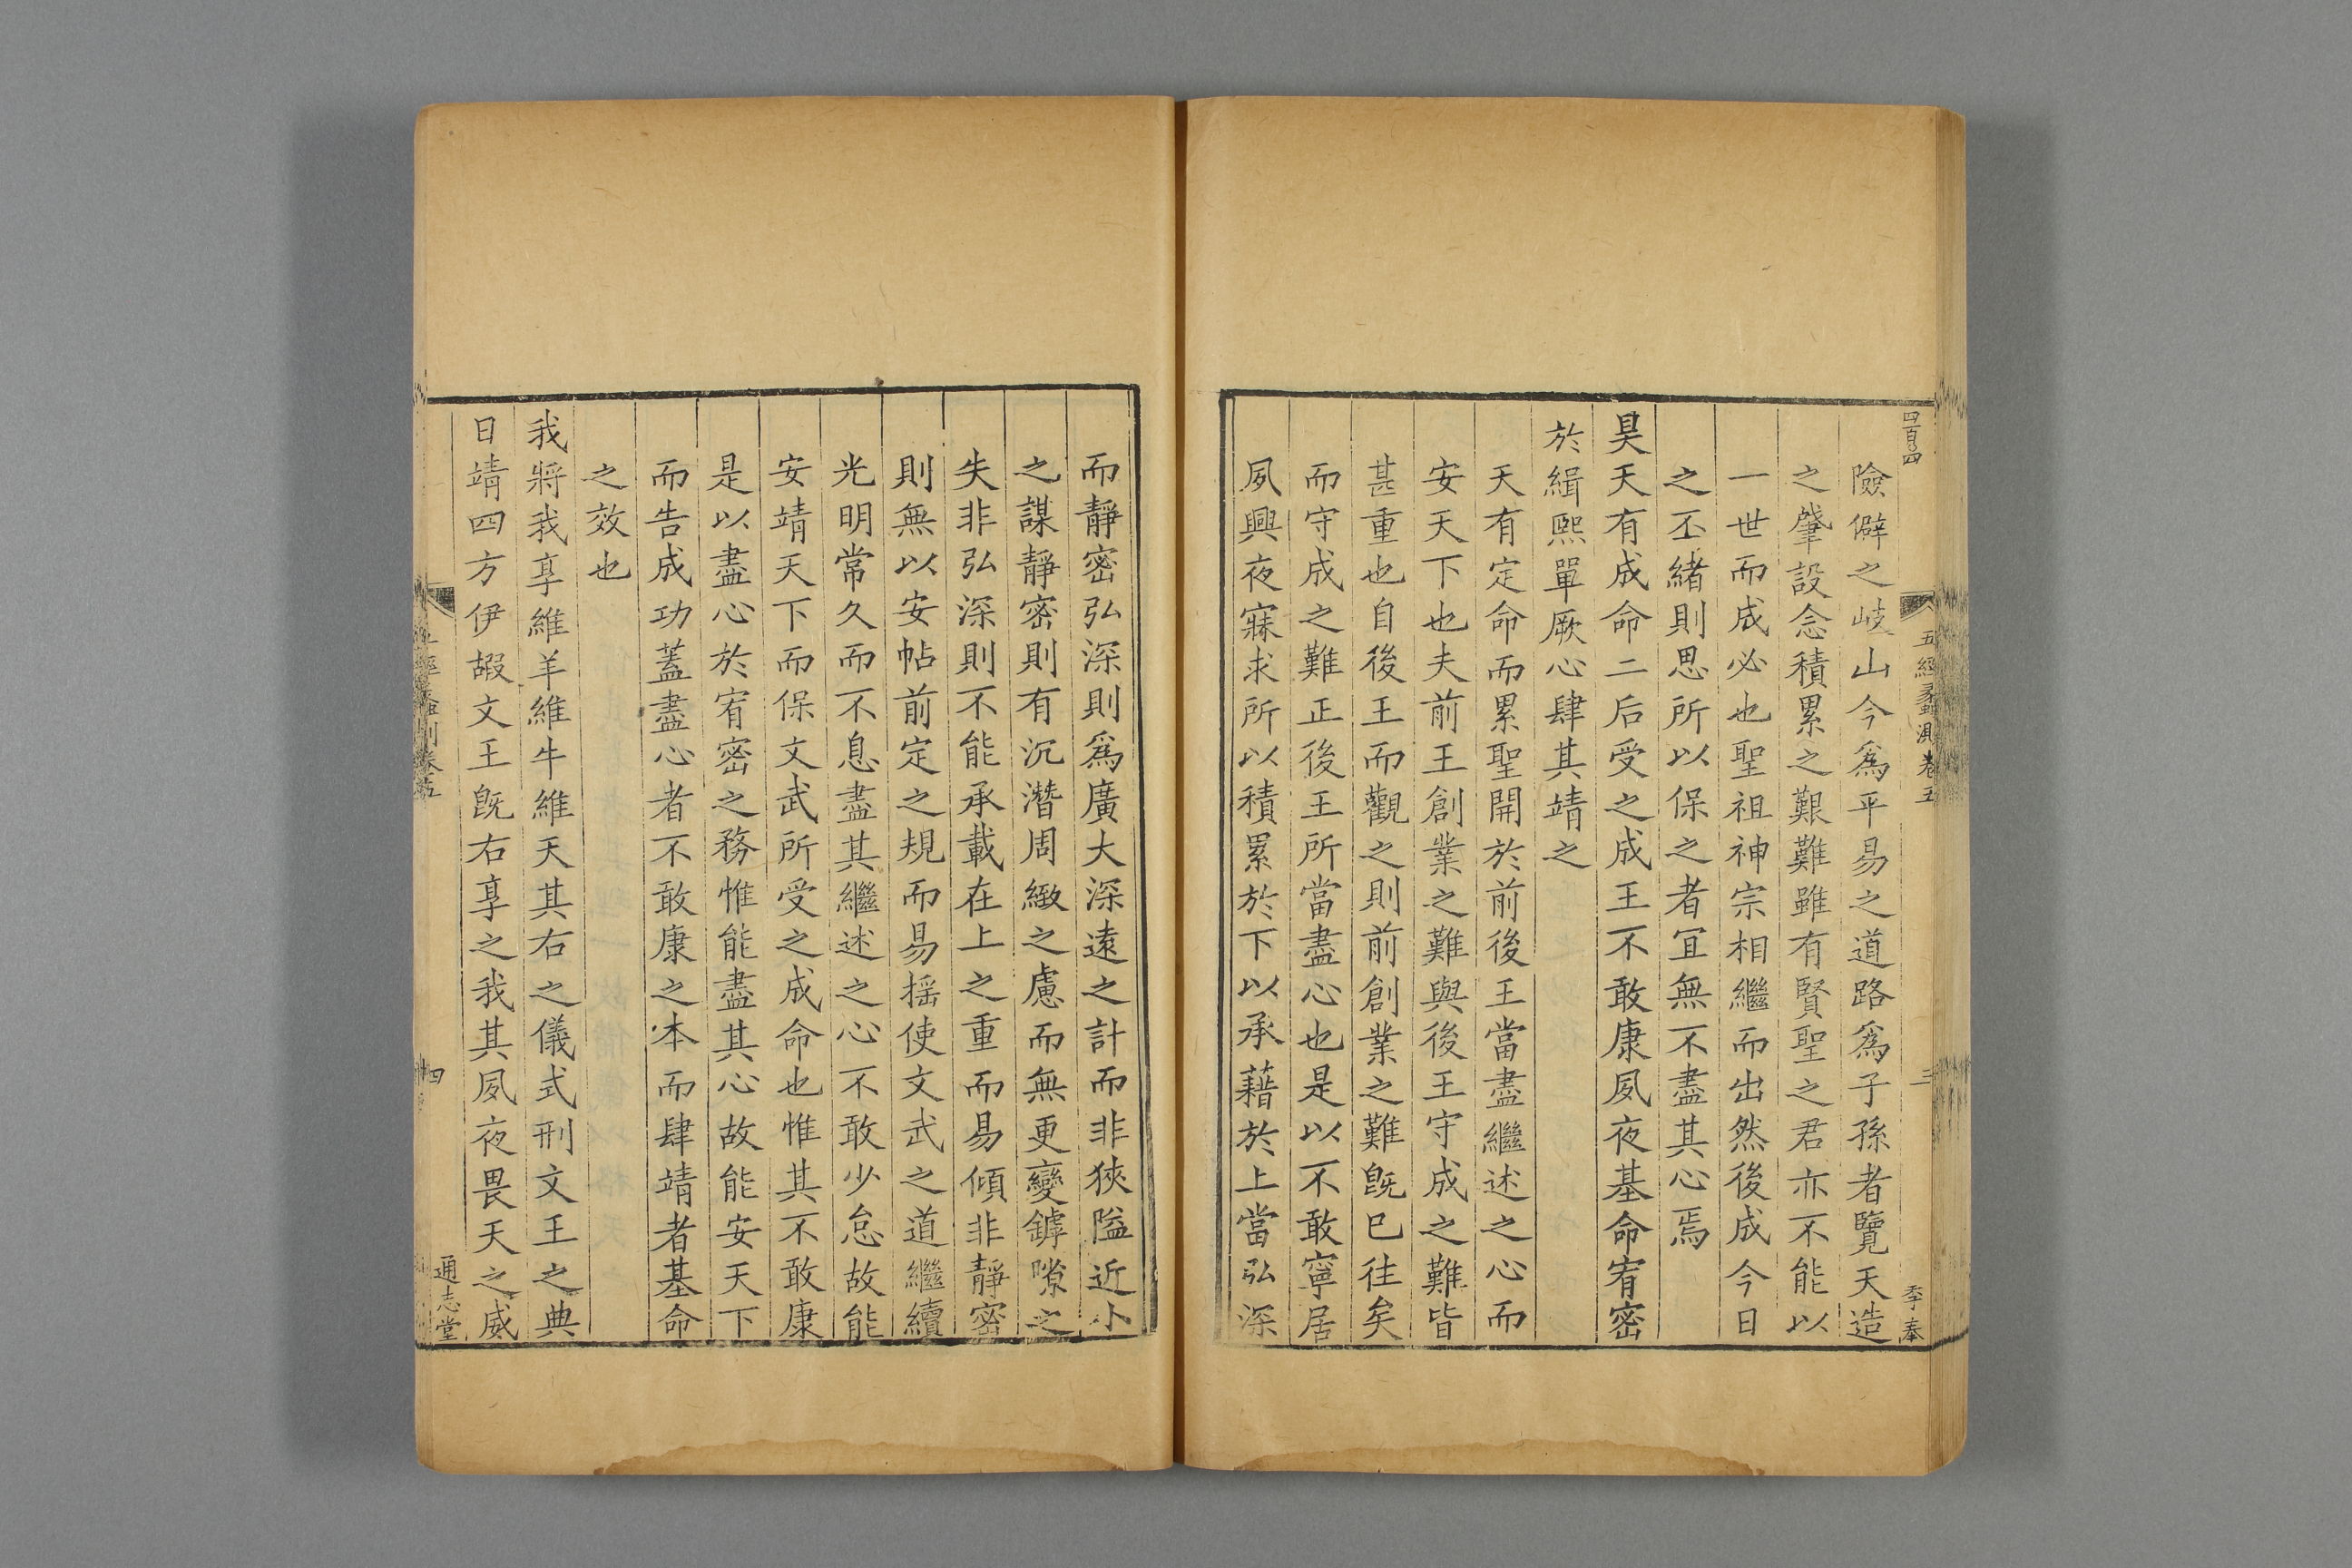 五經蠡測卷五
三
季奉
險僻之岐山今爲平易之道路爲子孫者覽天造
之肇設念積累之艱難雖有賢聖之君亦不能以
一世而成必也聖祖神宗相繼而出然後成今日
之丕緒則思所以保之者冝無不盡其心焉
昊天有成命二后受之成王不敢康夙夜基命宥密
於緝熙單厥心肆其靖之
天有定命而累聖開於前後王當盡繼述之心而
安天下也夫前王創業之難與後王守成之難皆
甚重也自後王而觀之則前創業之難旣巳往矣
而守成之難正後王所當盡心也是以不敢寧居
夙興夜寐求所以積累於下以承藉於上當弘深
而靜密弘深則爲廣大深遠之計而非狹隘近小
之謀靜密則有沉潛周緻之慮而無更變鏬隙之
失非弘深則不能承載在上之重而易傾非靜密
則無以安帖前定之規而易揺使文武之道繼續
光明常久而不息盡其繼述之心不敢少怠故能
安靖天下而保文武所受之成命也惟其不敢康
是以盡心於宥密之務惟能盡其心故能安天下
而告成功蓋盡心者不敢康之本而肆靖者基命
之效也
我將我享維羊維牛維天其右之儀式刑文王之典
日靖四方伊嘏文王旣右享之我其夙夜畏天之威
四
通志堂